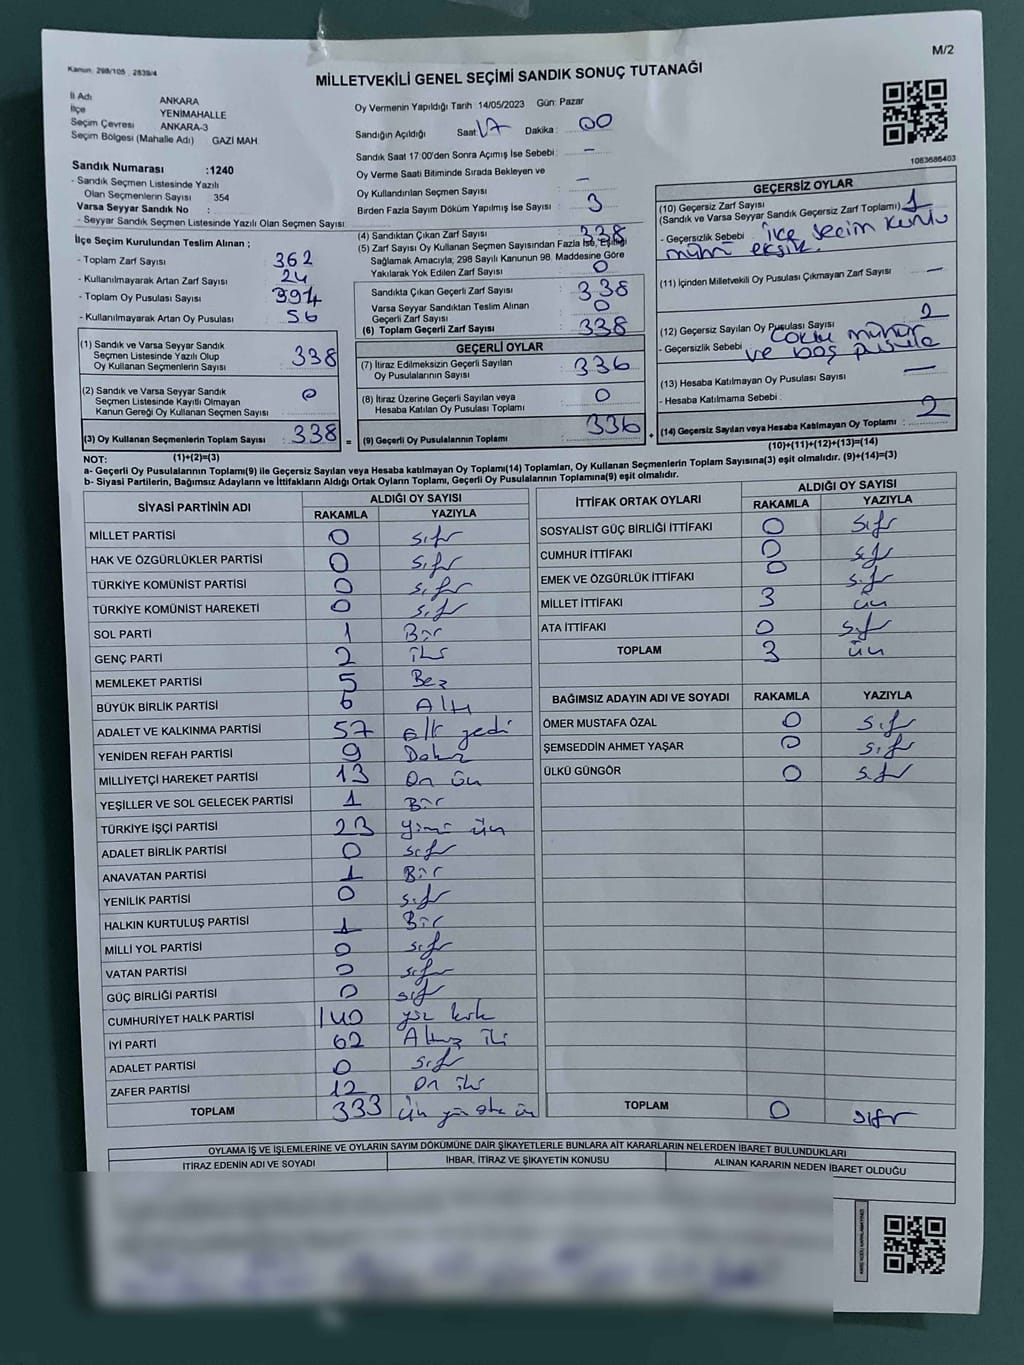 M/2
Kanun: 298/105 , 2839/4
MİLLETVEKİLİ GENEL SEÇİMİ SANDIK SONUÇ TUTANAĞI
İl Adı ANKARA
İlçe YENİMAHALLE
Seçim Çevresi ANKARA-3
Seçim Bölgesi (Mahalle Adı) GAZİ MAH
Sandık Numarası :1240
- Sandık Seçmen Listesinde Yazılı
Olan Seçmenlerin Sayısı : 354
Varsa Seyyar Sandık No :
- Seyyar Sandık Seçmen Listesinde Yazılı Olan Seçmen Sayısı
Oy Vermenin Yapıldığı Tarih : 14/05/2023 Gün: Pazar
Sandığın Açıldığı Saat 17 Dakika : 00
Sandık Saat 17:00'den Sonra Açımış İse Sebebi : -
Oy Verme Saati Bitiminde Sırada Bekleyen ve
Oy Kullandırılan Seçmen Sayısı -
Birden Fazla Sayım Döküm Yapılmış İse Sayısı 3
1083686403
İlçe Seçim Kurulundan Teslim Alınan ;
- Toplam Zarf Sayısı 362
- Kullanılmayarak Artan Zarf Sayısı 24
- Toplam Oy Pusulası Sayısı 394
- Kullanılmayarak Artan Oy Pusulası 56
(1) Sandık ve Varsa Seyyar Sandık
Seçmen Listesinde Yazılı Olup
Oy Kullanan Seçmenlerin Sayısı 338
(2) Sandık ve Varsa Seyyar Sandık
Seçmen Listesinde Kayıtlı Olmayan
Kanun Gereği Oy Kullanan Seçmen Sayısı 0
(3) Oy Kullanan Seçmenlerin Toplam Sayısı : 338 =
(1)+(2)=(3)
(4) Sandıktan Çıkan Zarf Sayısı 338
(5) Zarf Sayısı Oy Kullanan Seçmen Sayısından Fazla İse, Eşitliği
Sağlamak Amacıyla; 298 Sayılı Kanunun 98. Maddesine Göre
Yakılarak Yok Edilen Zarf Sayısı 0
Sandıkta Çıkan Geçerli Zarf Sayısı 338
Varsa Seyyar Sandıktan Teslim Alınan
Geçerli Zarf Sayısı 0
(6) Toplam Geçerli Zarf Sayısı 338
GEÇERLİ OYLAR
(7) İtiraz Edilmeksizin Geçerli Sayılan
Oy Pusulalarının Sayısı 336
(8) İtiraz Üzerine Geçerli Sayılan veya
Hesaba Katılan Oy Pusulası Toplamı 0
(9) Geçerli Oy Pusulalarının Toplamı 336 +
GEÇERSİZ OYLAR
(10) Geçersiz Zarf Sayısı
(Sandık ve Varsa Seyyar Sandık Geçersiz Zarf Toplamı) 1
- Geçersizlik Sebebi ilçe seçim kurulu
mührü eksik.
(11) İçinden Milletvekili Oy Pusulası Çıkmayan Zarf Sayısı -
(12) Geçersiz Sayılan Oy Pusulası Sayısı 2
- Geçersizlik Sebebi çoklu mühür
ve boş pusula
(13) Hesaba Katılmayan Oy Pusulası Sayısı -
- Hesaba Katılmama Sebebi :
(14) Geçersiz Sayılan veya Hesaba Katılmayan Oy Toplamı : 2
(10)+(11)+(12)+(13)=(14)
NOT:
a- Geçerli Oy Pusulalarının Toplamı(9) ile Geçersiz Sayılan veya Hesaba katılmayan Oy Toplamı(14) Toplamları, Oy Kullanan Seçmenlerin Toplam Sayısına(3) eşit olmalıdır. (9)+(14)=(3)
b- Siyasi Partilerin, Bağımsız Adayların ve İttifakların Aldığı Ortak Oyların Toplamı, Geçerli Oy Pusulalarının Toplamına(9) eşit olmalıdır.
SİYASİ PARTİNİN ADI ALDIĞI OY SAYISI
RAKAMLA YAZIYLA
MİLLET PARTİSİ 0 sıfır
HAK VE ÖZGÜRLÜKLER PARTİSİ 0 sıfır
TÜRKİYE KOMÜNİST PARTİSİ 0 sıfır
TÜRKİYE KOMÜNİST HAREKETİ 0 sıfır
SOL PARTİ 1 Bir
GENÇ PARTİ 2 iki
MEMLEKET PARTİSİ 5 Beş
BÜYÜK BİRLİK PARTİSİ 6 Altı
ADALET VE KALKINMA PARTİSİ 57 elli yedi
YENİDEN REFAH PARTİSİ 9 Dokuz
MİLLİYETÇİ HAREKET PARTİSİ 13 On üç
YEŞİLLER VE SOL GELECEK PARTİSİ 1 Bir
TÜRKİYE İŞÇİ PARTİSİ 23 yirmi üç
ADALET BİRLİK PARTİSİ 0 sıfır
ANAVATAN PARTİSİ 1 Bir
YENİLİK PARTİSİ 0 sıfır
HALKIN KURTULUŞ PARTİSİ 1 Bir
MİLLİ YOL PARTİSİ 0 sıfır
VATAN PARTİSİ 0 sıfır
GÜÇ BİRLİĞİ PARTİSİ 0 sıfır
CUMHURİYET HALK PARTİSİ 140 yüz kırk
İYİ PARTİ 62 Altmış iki
ADALET PARTİSİ 0 sıfır
ZAFER PARTİSİ 12 On iki
TOPLAM 333 üç yüz otuz üç
İTTİFAK ORTAK OYLARI ALDIĞI OY SAYISI
RAKAMLA YAZIYLA
SOSYALİST GÜÇ BİRLİĞİ İTTİFAKI 0 sıfır
CUMHUR İTTİFAKI 0 sıfır
EMEK VE ÖZGÜRLÜK İTTİFAKI 0 sıfır
MİLLET İTTİFAKI 3 üç
ATA İTTİFAKI 0 sıfır
TOPLAM 3 üç
BAĞIMSIZ ADAYIN ADI VE SOYADI RAKAMLA YAZIYLA
ÖMER MUSTAFA ÖZAL 0 sıfır
ŞEMSEDDİN AHMET YAŞAR 0 sıfır
ÜLKÜ GÜNGÖR 0 sıfır
TOPLAM 0 sıfır
OYLAMA İŞ VE İŞLEMLERİNE VE OYLARIN SAYIM DÖKÜMÜNE DAİR ŞİKAYETLERLE BUNLARA AİT KARARLARIN NELERDEN İBARET BULUNDUKLARI
İTİRAZ EDENİN ADI VE SOYADI İHBAR, İTİRAZ VE ŞİKAYETİN KONUSU ALINAN KARARIN NEDEN İBARET OLDUĞU